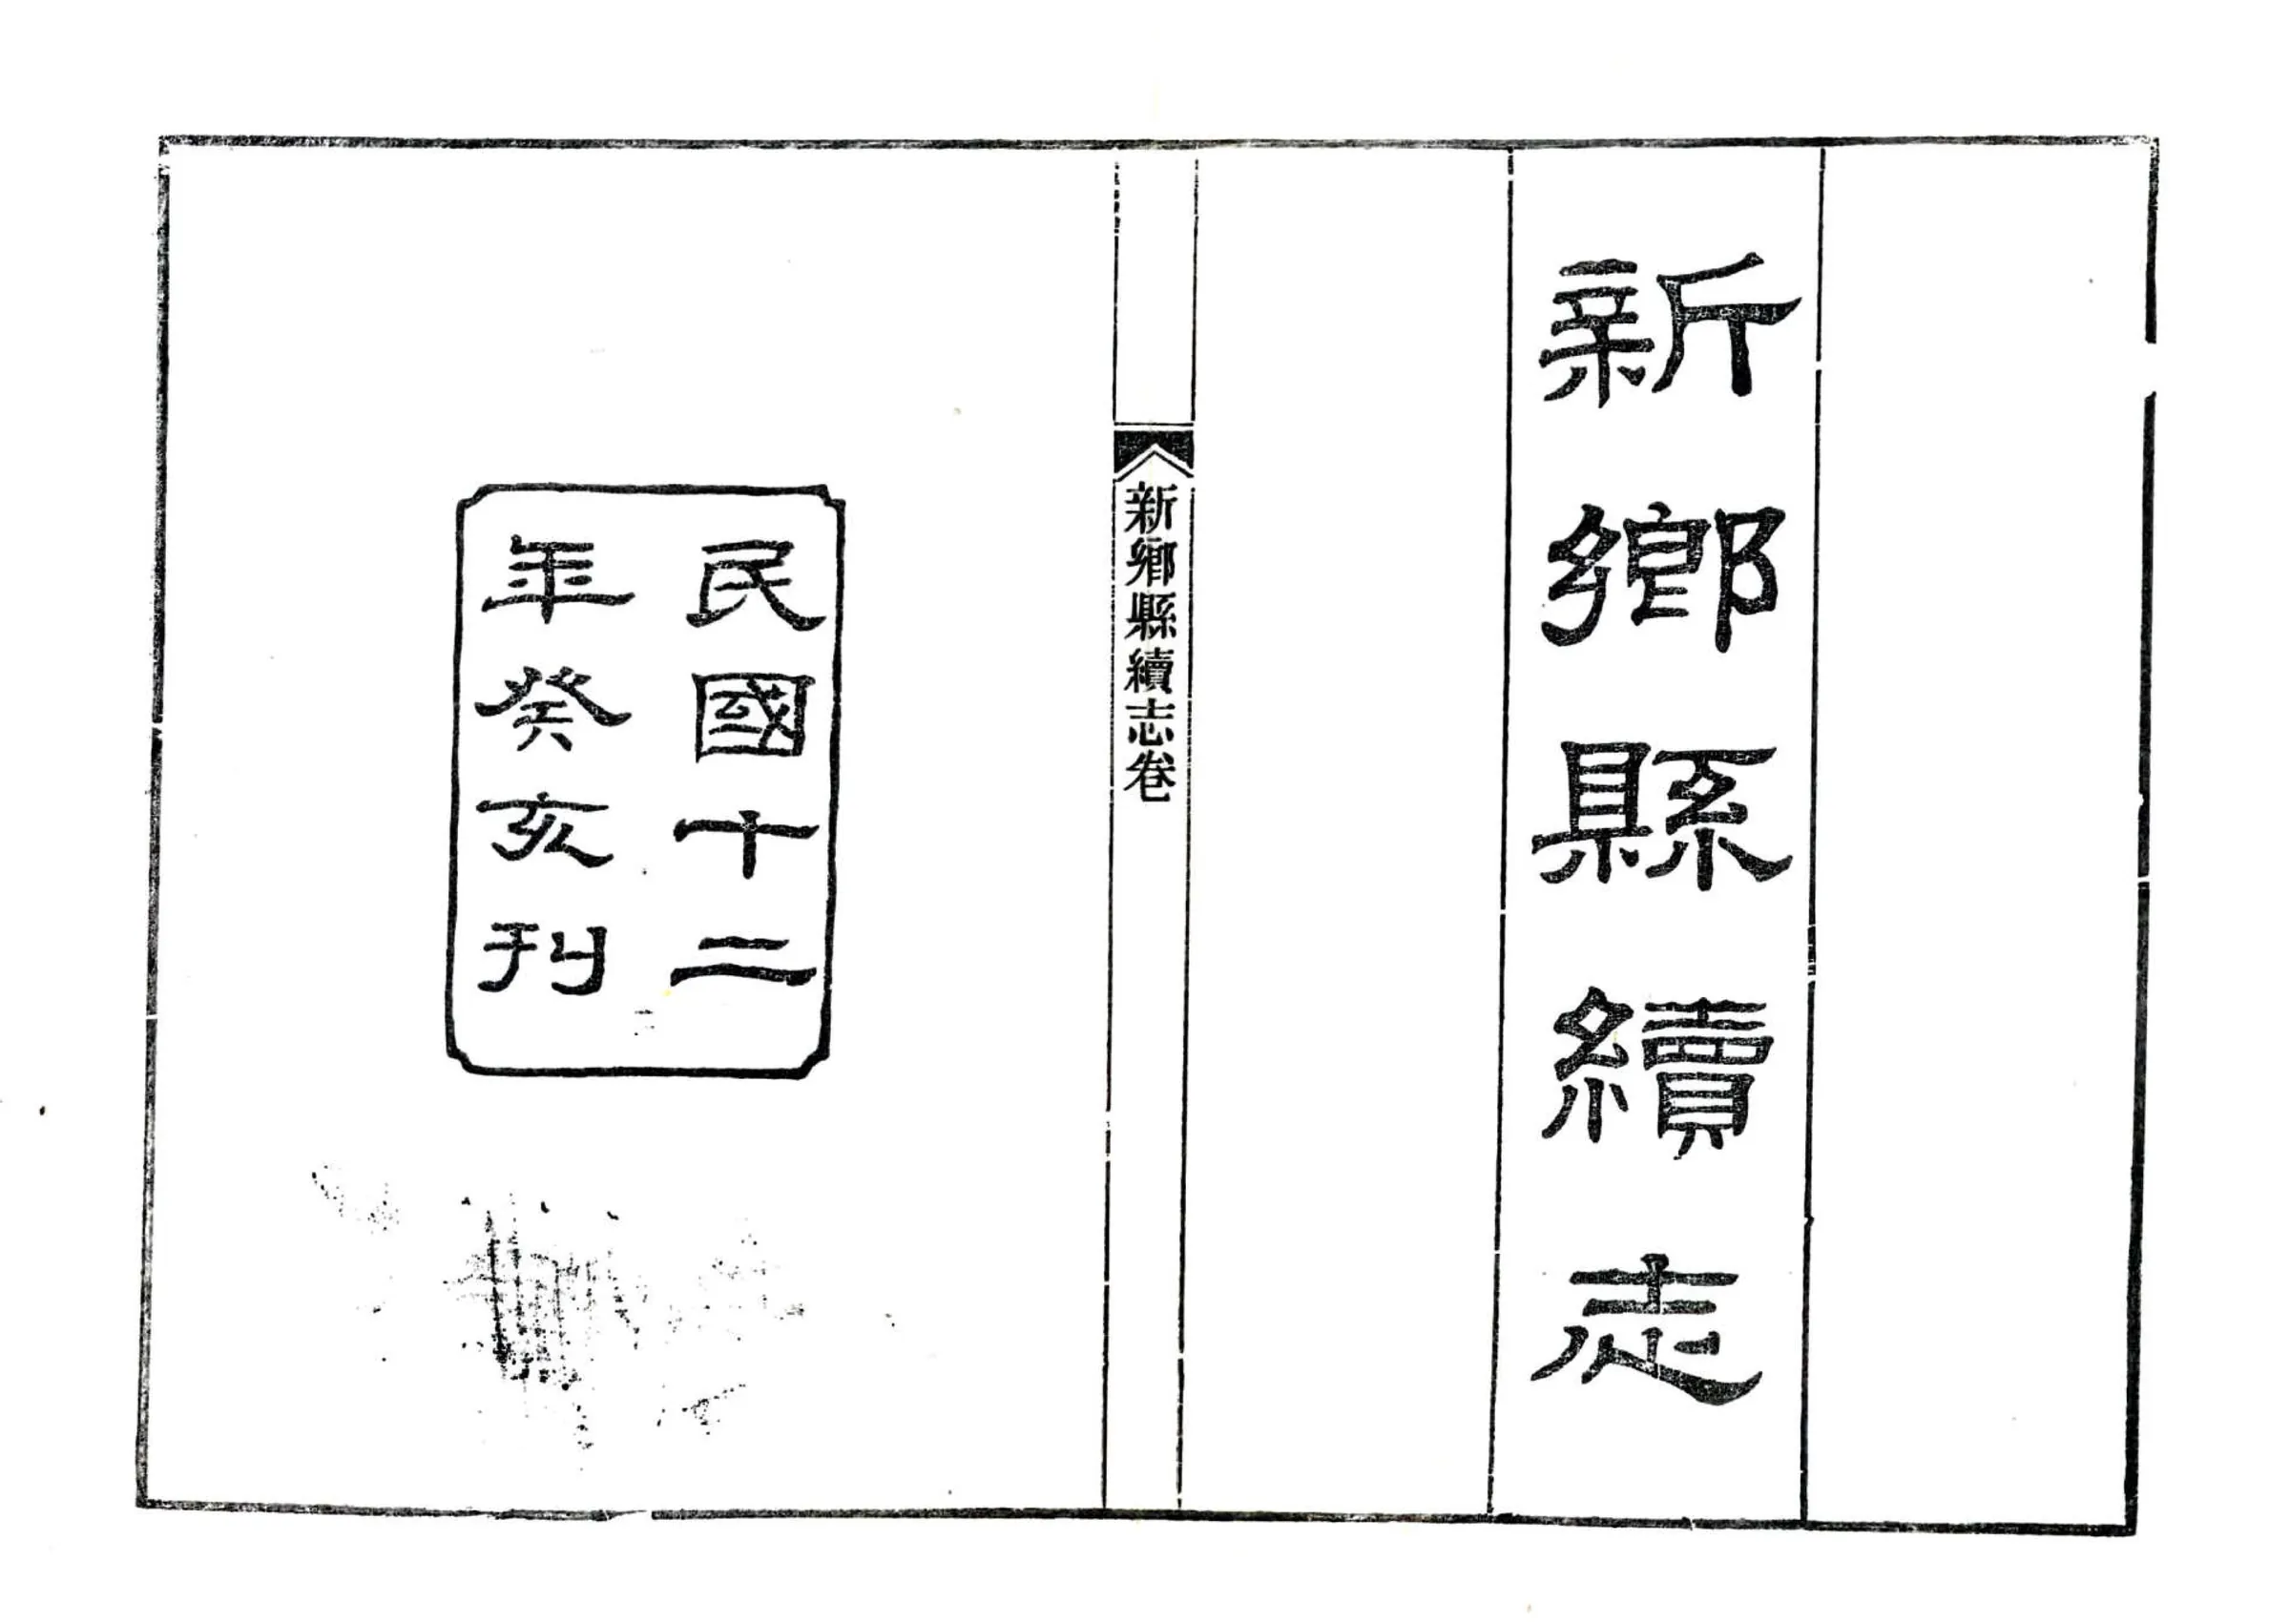 新鄉縣續志
新鄉縣續志卷
民國十二
年癸亥刊